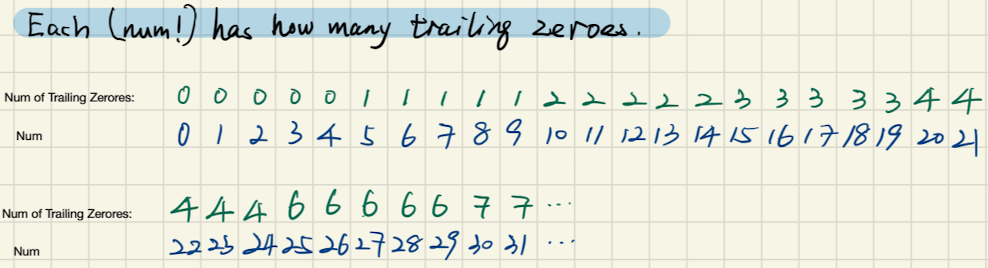 Each (num!) has how many trailing zeroes.
Num of Trailing Zerores: 0 0 0 0 0 1 1 1 1 1 2 2 2 2 2 3 3 3 3 3 4 4
Num 0 1 2 3 4 5 6 7 8 9 10 11 12 13 14 15 16 17 18 19 20 21
Num of Trailing Zerores: 4 4 4 6 6 6 6 6 7 7 ...
Num 22 23 24 25 26 27 28 29 30 31 ...